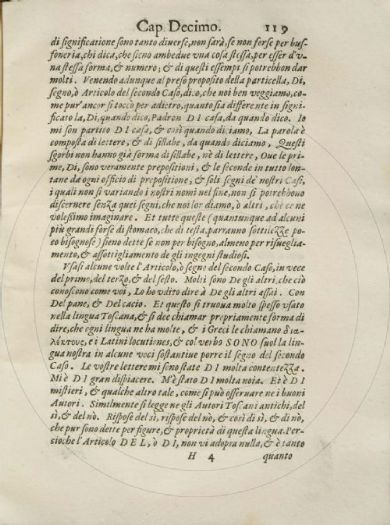 Cap Decimo. 119
di significatione sono tanto diuerse, non sarà, se non forse per buf-
foneria, chi dica, che sieno ambedue vna cosa stessa, per esser d'v-
na stessa forma, & numero; & di questi essempi si potrebbon dar
molti. Venendo adunque al preso proposito della particella, Di,
segno, ò Articolo del secondo Caso, dico, che noi ben veggiamo, co-
me pur'ancor si toccò per adietro, quanto sia differente in signifi-
cato la, Di, quando dico, Padron DI casa, da quando dico. Io
mi son partito DI casa, & così quando diciamo, La parola è
composta di lettere, & di sillabe, da quando diciamo, Questi
sgorbi non hanno già forma di sillabe, nè di lettere, Oue le pri-
me, Di, sono veramente prepositioni, & le seconde in tutto lon-
tane da ogni officio di prepositione, & soli segni de' nostri Casi,
i quali non si variando i nostri nomi nel fine, non si potrebbono
discernere senza quei segni, che noi lor diamo, ò altri, che ce ne
volessimo imaginare. Et tutte queste (quantunque ad alcuni
più grandi forse di stomaco, che di testa, parranno sottilezze po-
co bisognose) sieno dette se non per bisogno, almeno per risueglia-
mento, & assottigliamento de gli ingegni studiosi.
Vsasi alcune volte l'Articolo, ò segno del secondo Caso, in vece
del primo, del terzo, & del sesto. Molti sono De gli altri, che ciò
conoscono come voi, Lo ho vdito dire à De gli altri assai. Con
Del pane, & Del cacio. Et questo si truoua molto spesso vsato
nella lingua Toscana, & si dee chiamar propriamente forma di
dire, che ogni lingua ne ha molte, & i Greci le chiamano
e i Latini locutiones, & col verbo SONO suol la lin-
gua nostra in alcune voci sostantiue porre il segno del secondo
Caso. Le vostre lettere mi sono state DI molta contentezza.
Mi è DI gran dispiacere. M'è stato DI molta noia. Et è DI
mistieri, & qualche altro tale, come si può osseruare ne i buoni
Autori. Similmente si legge ne gli Autori Toscani antichi, del
sì, & del nò. Rispose del sì, rispose del nò, & così di sì, & di nò,
che pur sono dette per figure, & proprietà di questa lingua. Per-
cioche l'Articolo DEL, ò DI, non vi adopra nulla, & è tanto
H 4 quanto